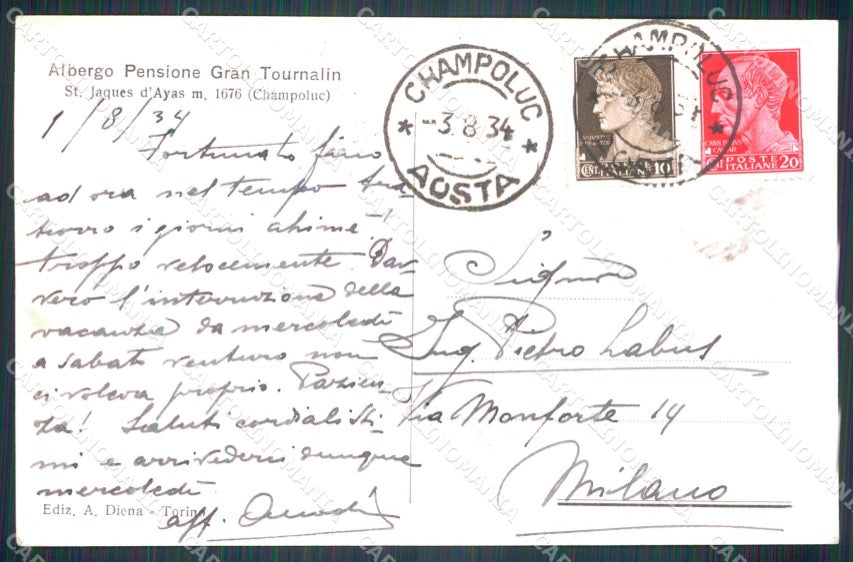 Albergo Pensione Gran Tournalin
St. Jaques d'Ayas m. 1676 (Champoluc)
1/8/34
Fortunato fino
ad ora nel tempo tra-
scorro i giorni ahimè!
troppo velocemente. Dav-
vero l'interruzione della
vacanza da mercoledì
a sabato venturo non
ci voleva proprio. Pazien-
za! Saluti cordialissi-
mi e arrivederci dunque
mercoledì
aff.
Ediz. A. Diena - Torino
CHAMPOLUC
-3.8.34
AOSTA
CHAMPOLUC
3.8.34
CENT. POSTE ITALIANE 10
POSTE ITALIANE 20
Signor
Ing. Pietro Labus
Via Monforte 14
Milano
CARTOLINOMANIA